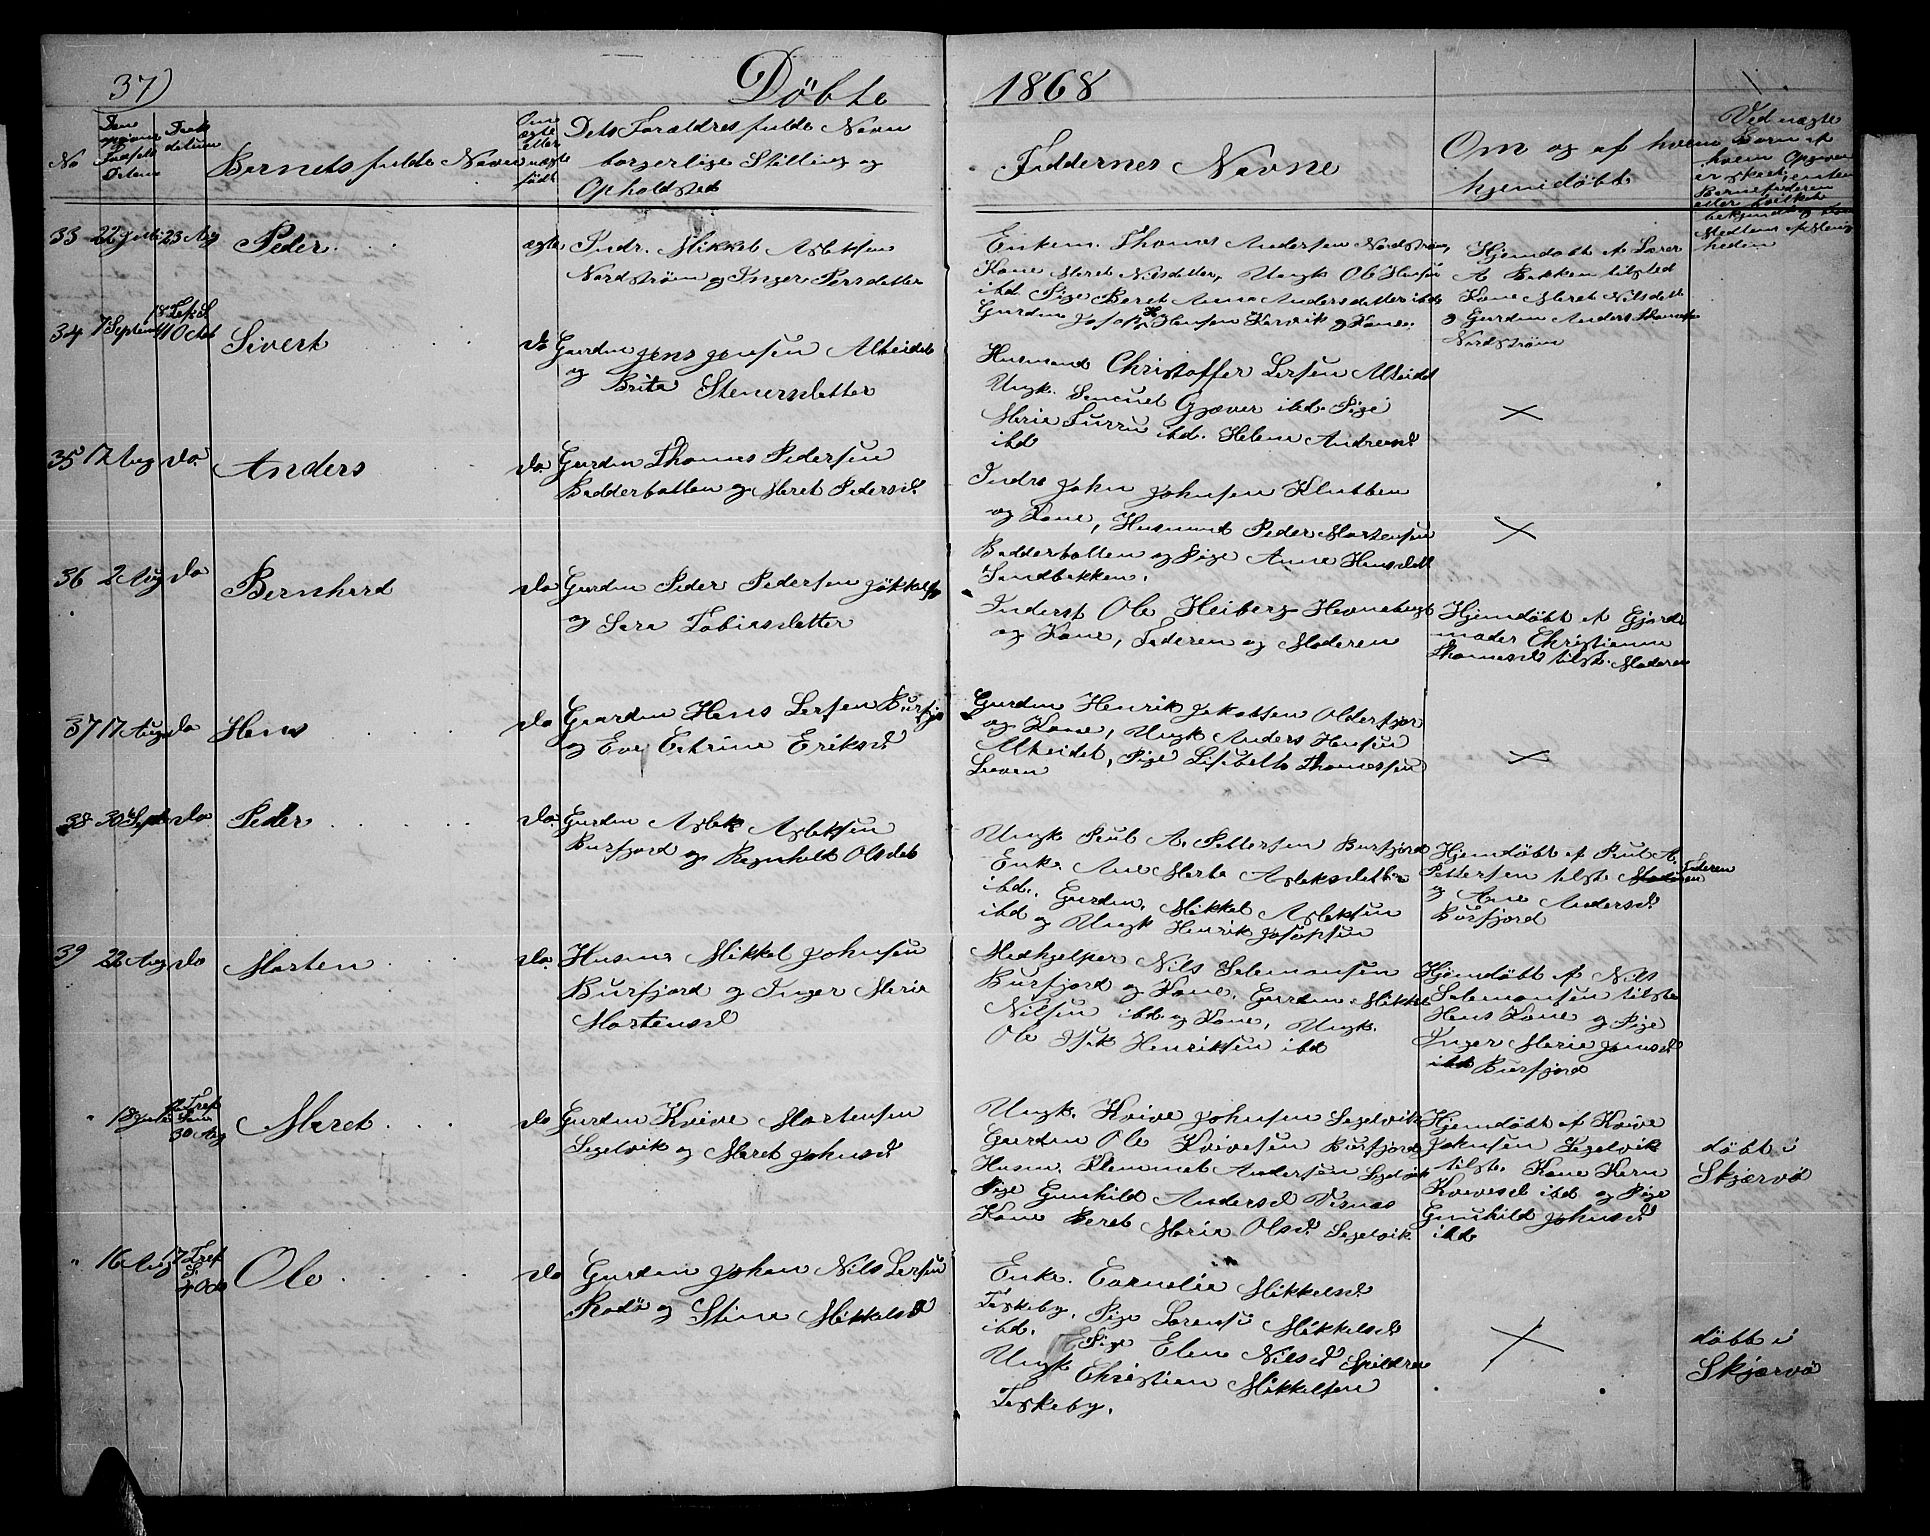 37)
Döbte
1868
No
Barnets fulde Navn
Dets Forældres fulde Navn
borgerlige Stilling og
Opholdsted
Faddernes Navne
Om og af hvem
hjemdöbt
33 22 Juli 23 Aug Peder
ægte Indr. Mikkel Aslaksen
Nordström og Inger Persdatter
Enkem. Thomas Andersen Nordström,
Kone Maret Nilsdatter, Ungk Ole Hansen
ibd Pige Beret Anna Andersdatter ibd
Gaardm Josop Hansen Kjervik og Kone.
Hjemdöbt af Lærer
A. Bakken tilsted
Kone Maret Nilsdatt
og Gaardm Anders Thomas
Nordström
34 7 Septem 18 Tref. S. 11 Octob Sivert
do Gaardm Jens Jensen Alteidet
og Brita Stenersdatter
Husmand Christoffer Larsen Alteidet
Ungk. Samuel Gjæver ibd. Pige
Marie Furru ibd. Helene Andreasd
ibd
35 17 Aug do. Anders
do. Gaardm Thomas Pedersen
Badderbotten og Maret Pedersd.
Inders John Johnsen Klubben
og Kone, Husmand Peder Mortensen
Badderbotten og Pige Anne Hansdatt
Sandbakken.
36 2 Aug do Bernhard
do Gaardm Peder Pedersen Jökkelfj
og Sara Tobiasdatter
Inderst Ole Heiberg Havnebugt
og Kone, Faderen og Moderen
Hjemdöbt af Gjorde
moder Christianna
Thomasd tilst. Moderen
37 17 Aug do Hans
do Gaardm Hans Larsen Burfjor
og Eva Catrine Eriksd
Gaardm Henrik Jakobsen Olderfjor
og Kone, Ungk Anders Hansen
Alteidet, Pige Lisabeth Thomassen
Leeren
38 30 Septb do Peder
do. Gaardm Aslak Aslaksen
Burfjord og Regnhild Olsdat
Ungk Paul A. Pettersen Burfjord
Enke. Ane Marta Aslaksdatter
ibd. Gaardm. Mikkel Aslaksen
ibd og Ungk Henrik Josopsen
Hjemdöbt af Paul A.
Pettersen tilste. Faderen
og Ane Andersd.
Burfjord
39 22 Aug do Morten
do. Husm Mikkel Johnsen
Burfjord og Inger Marie
Mortensd
Medhjelper Nils Salamonsen
Burfjord og Kone. Gaardm. Mikkel
Nilsen ibd. og Kone, Ungk.
Ole Isak Henriksen ibd
Hjemdöbt af Nils
Salamonsen tilste
Hans Kone og Pige
Inger Marie Jonasd
Burfjord
" 18 Juli 30 Aug Maret
do Gaardm Kvive Mortensen
Segelvik og Maret Johnsd
Ungk. Kvive Johnsen Segelvik
Gaardm Ole Kvivesen Burfjord
Husm. Klemmet Andersen Segelvik
Pige Gunhild Andersd Visnæs
Kone Beret Maria Olsd Segelvik
Hjemdöbt af Kvive
Johnsen Segelvik
tilste. Kone Karn
Kvivesd ibd og Pige
Gunhild Johnsd
ibd
döbt i
Skjærvö
" 16 Aug 17 Tref S. 4 Octb Ole
do Gaardm Johan Nils Larsen
Rodö og Stine Mikkelsd
Enke. Cornelia Mikkelsd
Taskeby. Pige Larensa Mikkelsd
ibd. Pige Elen Nilsd Spildren
Ungk Christian Mikkelsen
Taskeby.
döbt i
Skjærvö